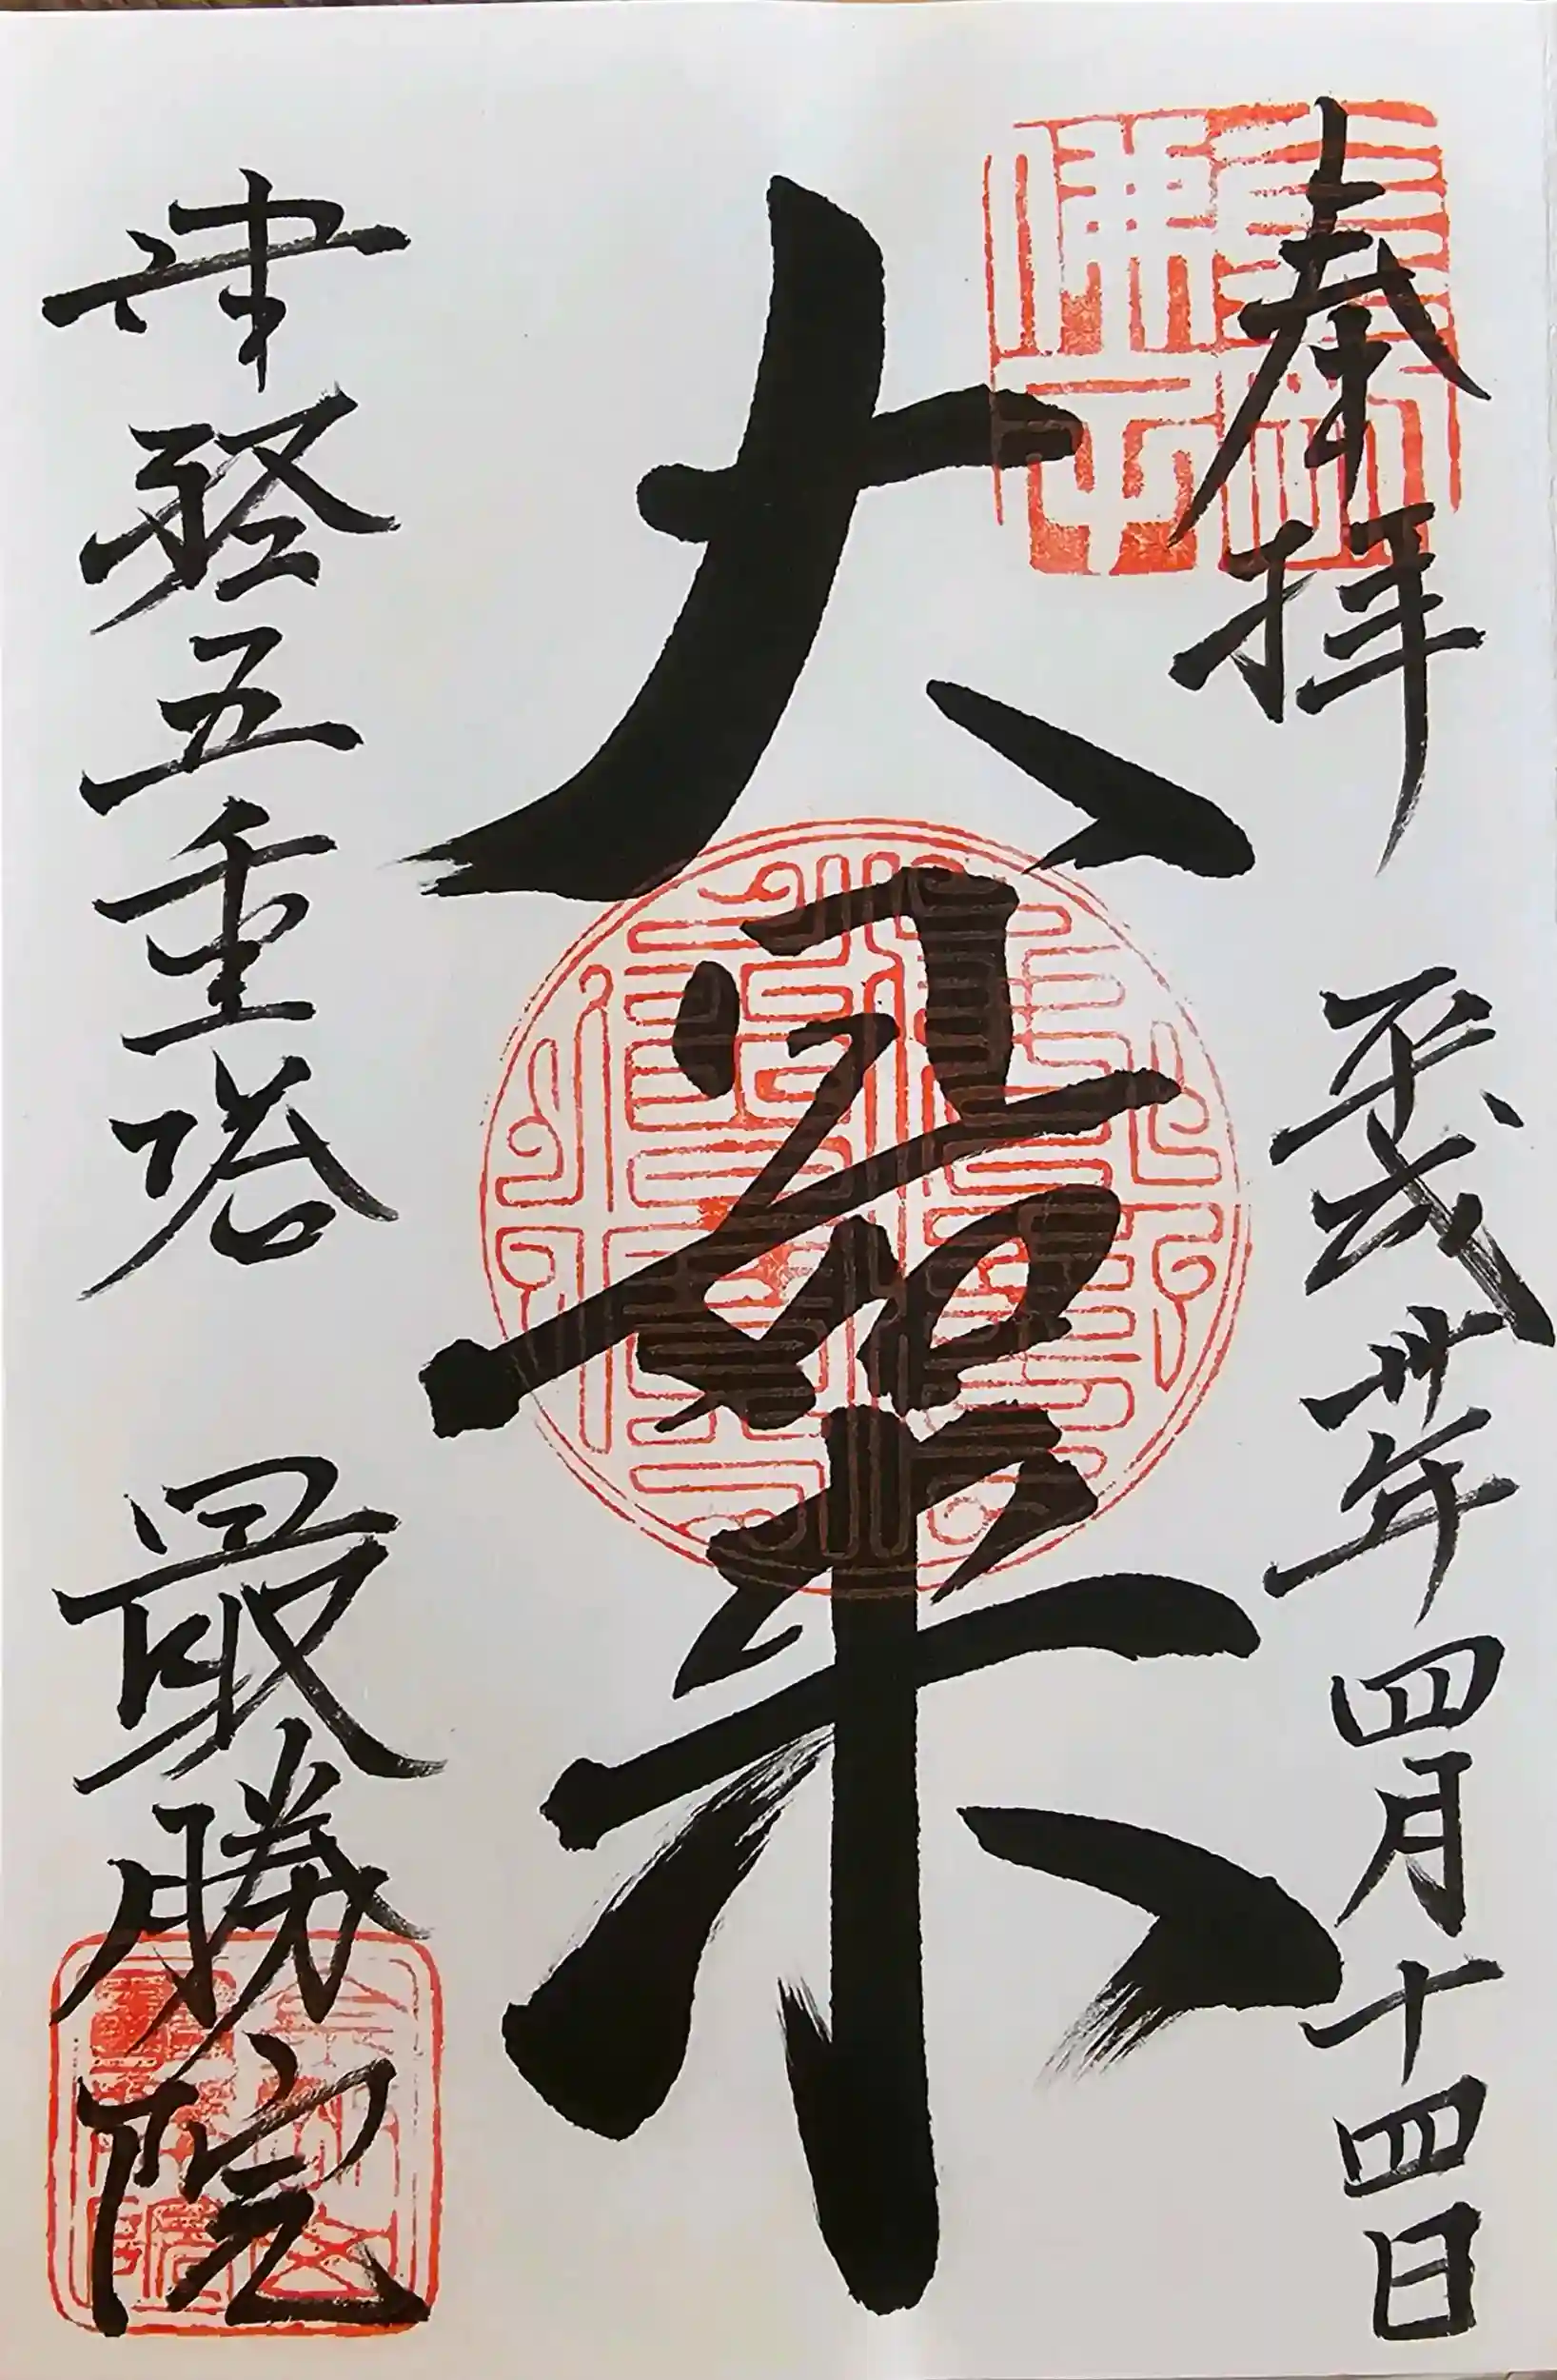 奉拝 平成卅年四月十四日
大日如来
津軽五重塔 最勝院